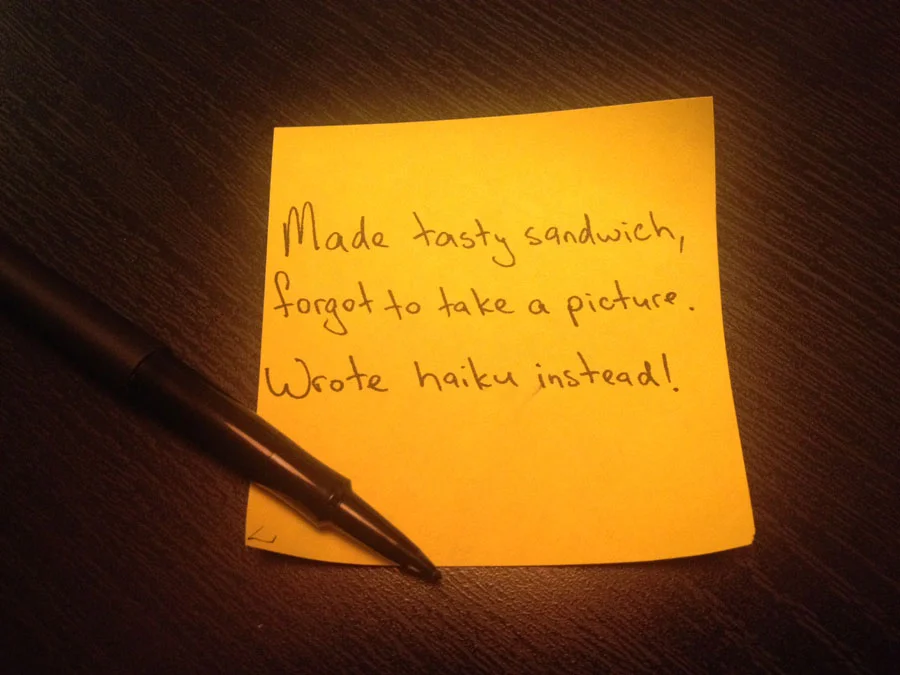 Made tasty sandwich,
forgot to take a picture.
Wrote haiku instead!